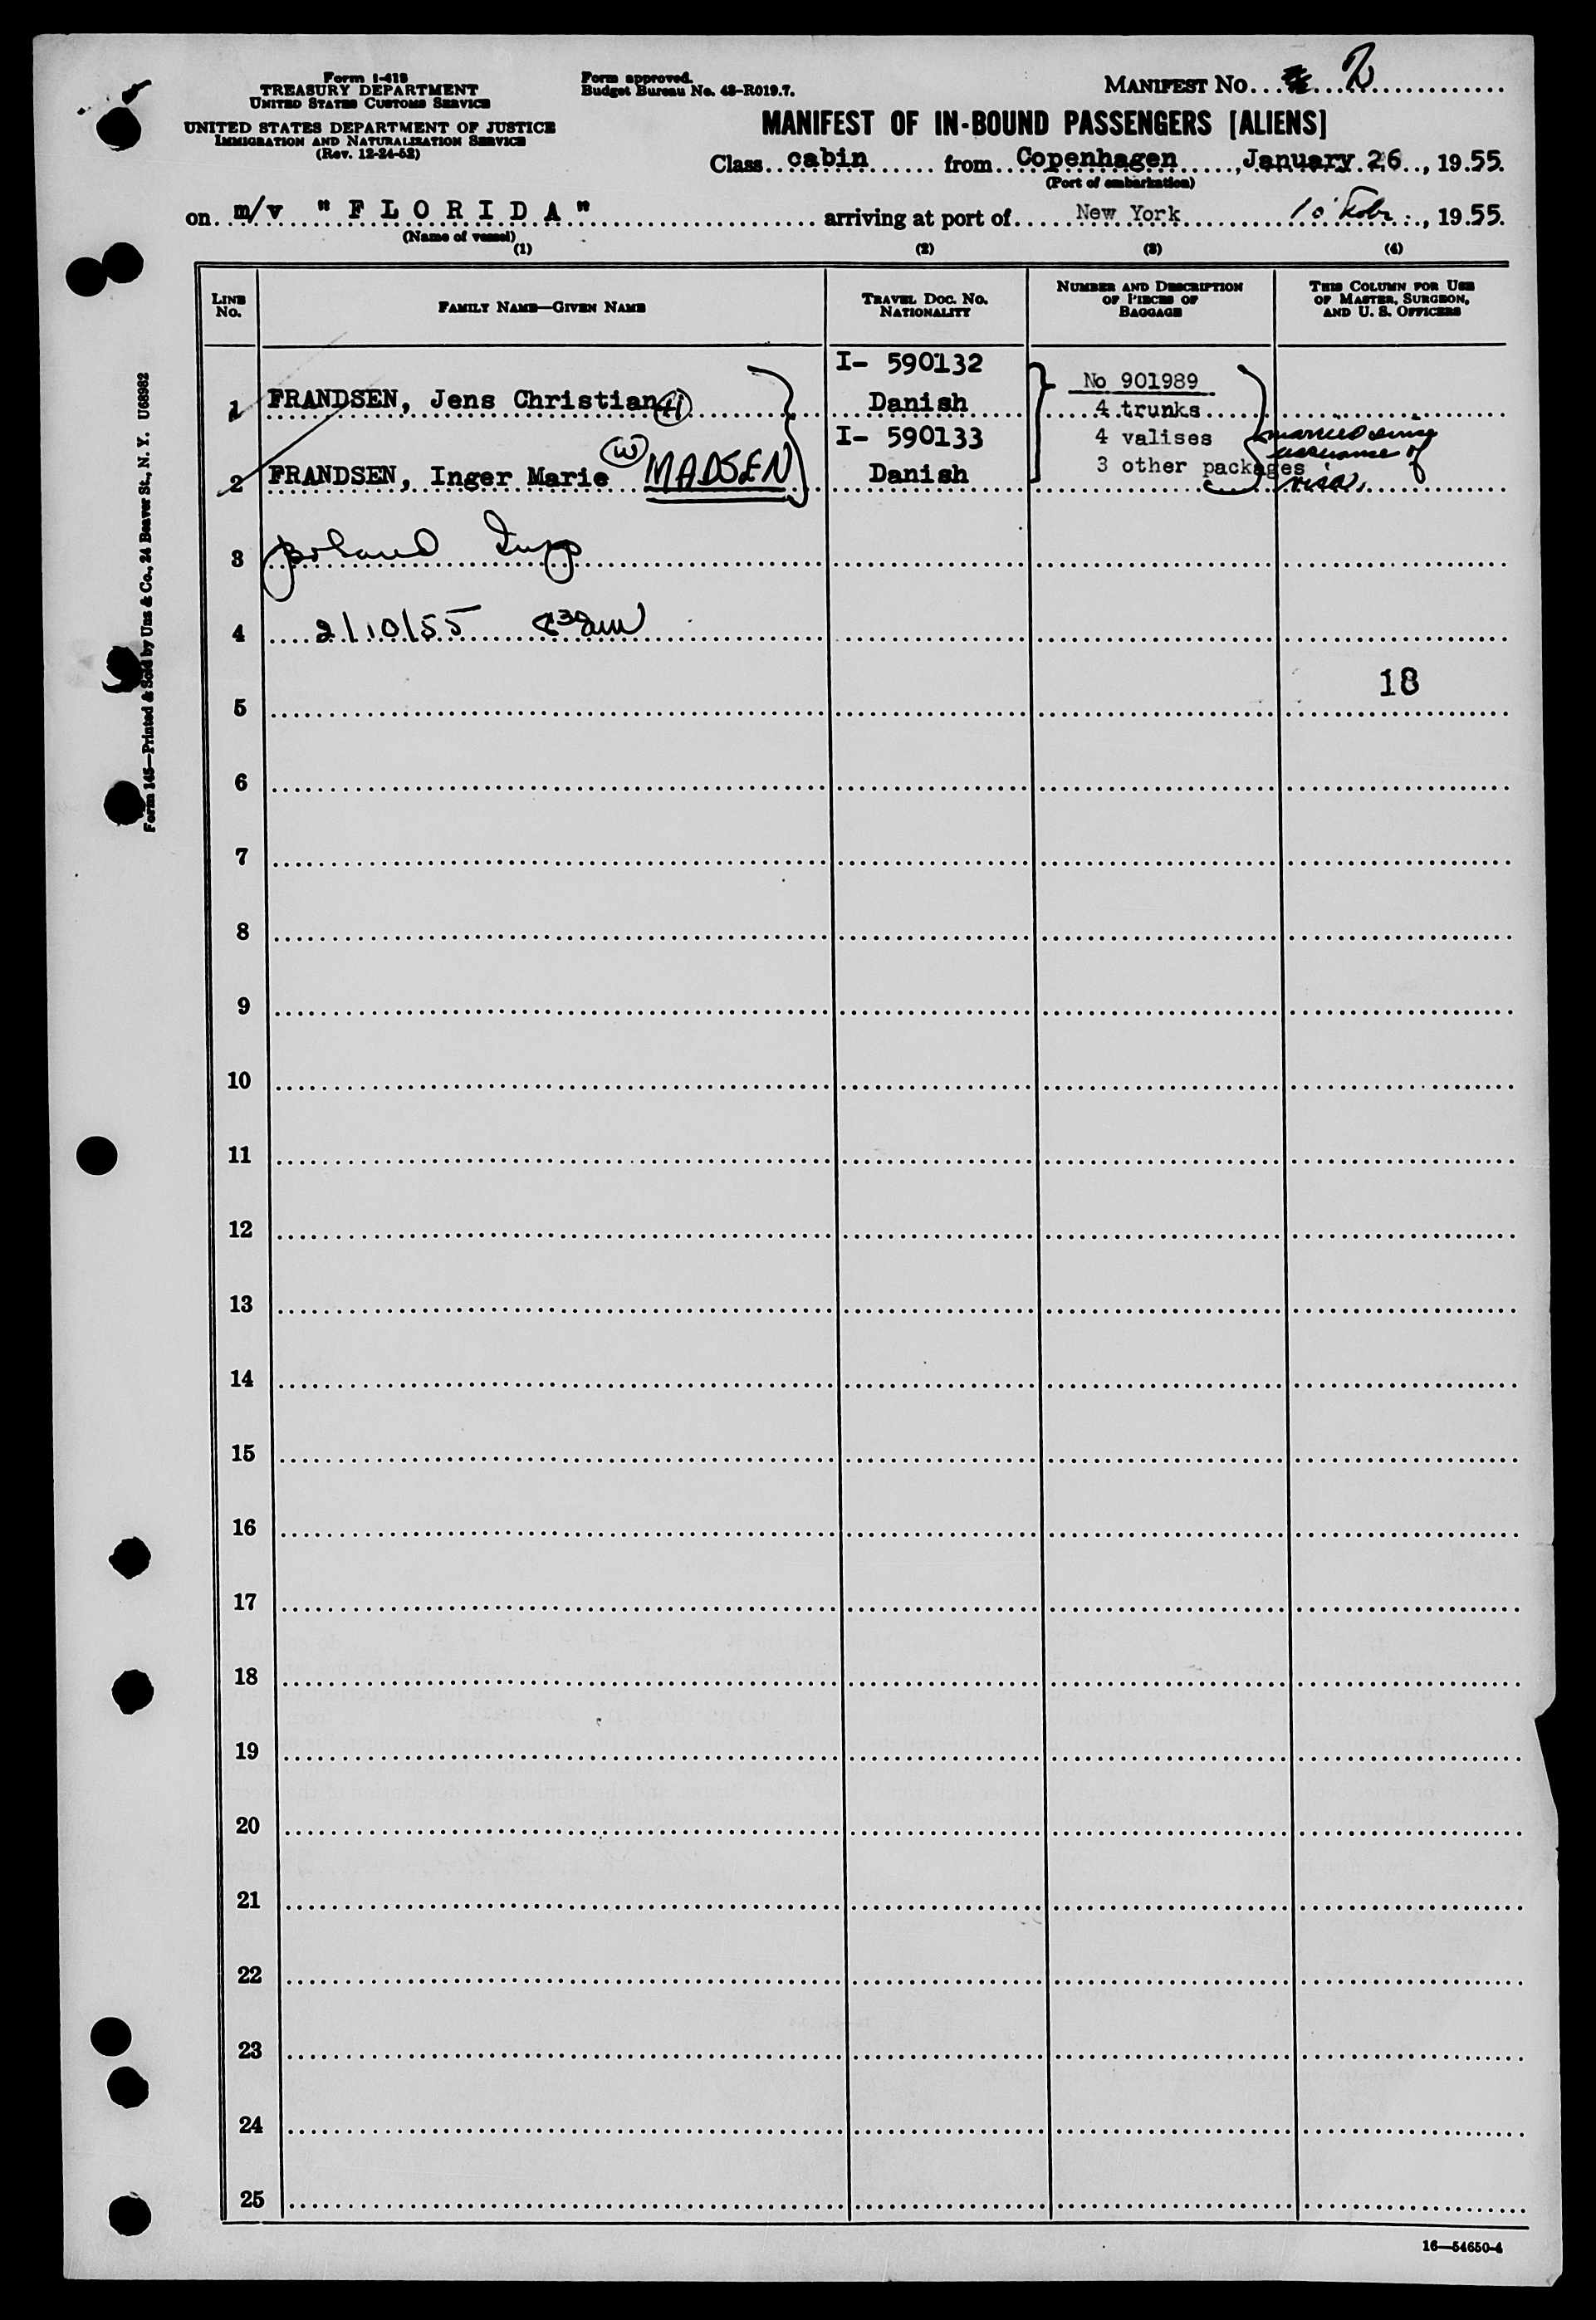 Form I-418
TREASURY DEPARTMENT
UNITED STATES CUSTOMS SERVICE
UNITED STATES DEPARTMENT OF JUSTICE
IMMIGRATION AND NATURALIZATION SERVICE
(Rev. 12-24-52)
Form approved.
Budget Bureau No. 43-R019.7.
MANIFEST NO. 2
MANIFEST OF IN-BOUND PASSENGERS [ALIENS]
Class cabin from Copenhagen, January 26, 1955.
(Port of embarkation)
on m/v "FLORIDA" arriving at port of New York 10' Febr., 1955.
(Name of vessel)
(1) (2) (3) (4)
LINE NO.
FAMILY NAME—GIVEN NAME
TRAVEL DOC. NO. NATIONALITY
NUMBER AND DESCRIPTION OF PIECES OF BAGGAGE
THIS COLUMN FOR USE OF MASTER, SURGEON, AND U. S. OFFICERS
1 FRANDSEN, Jens Christian (H) I- 590132 Danish
No 901989
4 trunks
4 valises
3 other packages
2 FRANDSEN, Inger Marie (W) MADSEN I- 590133 Danish
married since
issuance of
visa.
3
4 2/10/55
5 18
6
7
8
9
10
11
12
13
14
15
16
17
18
19
20
21
22
23
24
25
Form 145—Printed & Sold by Unz & Co., 24 Beaver St., N. Y. U68982
16—54650-4